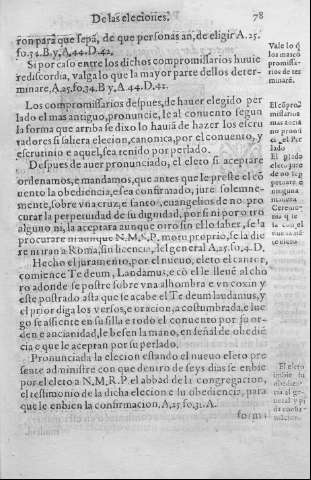 De las eleciones. 78
ron para que sepã, de que personas an, de eligir A. 25.
fo. 34. B y, A, 44. D. 42.
Si por caso entre los dichos compromissarios huuie
re discordia, valga lo que la mayor parte dellos deter-
minare, A, 25, fo, 34. B y, A. 44. D. 42.
Los compromissarios despues, de hauer elegido per
lado el mas antiguo, pronuncie, le al conuento segun
la forma que arriba se dixo lo hauiã de hazer los escru
tadores si saliera elecion, canonica, por el conuento, y
escrutinio e aquel, sea tenido por perlado.
Despues de auer pronunciado, el eleto si aceptare
ordenamos, e mandamos, que antes que le preste el cõ
uento la obediencia, e sea confirmado, jure solemne-
mente, sobre vna cruz, e santos, euangelios de no pro
curar la perpetuidad de su dignidad, por si ni por otro
alguno ni, la aceptara aunque otro sin el lo sabe, se la
procurare ni aunque N. M. S. P. motu proprio, se la die
re ni iran a Roma, sin licencia, del general A, 25, fo, 4. D.
Hecho el juramento, por el nueuo, eleto el cantor,
comience Te deum, Laudamus, e cõ el le lleuẽ al cho
ro adonde se postre sobre vna alhombra e vn coxin y
este postrado asta que se acabe el Te deum laudamus, y
el prior diga los versos, e oracion, acostumbrada, e lue
go se assiente en su silla e todo el conuento por su or-
den e ancianidad, le besen la mano, en señal de obediẽ
cia e que le aceptan por su perlado.
Pronunciada la elecion estando el nueuo eleto pre
sente administre con que dentro de seys dias se enbie
por el eleto a N. M. R. P. el abbad de la congregacion,
el testimonio de la dicha elecion e su obediencia, para
que le enbien la confirmacion, A, 25, fo, 31. A.
forma
Vale lo q̃
los mas cõ
promissa-
rios de ter
minarẽ.
El cõpro
missarios
mas antig
no pronũ
cie, el Per
lado
El plado
eleto jure
de no la p
petuar e
ninguna
manera
Ceremo-
nia q se
haze con el
nueuamẽ
te eleto
El eleto
imbie su
obedien-
cia al ge-
neral y pi
da confir-
macion.